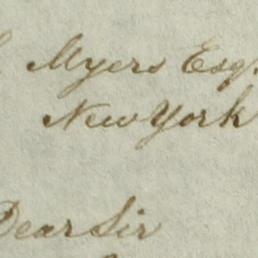 Myers Esq.
New York
Dear Sir